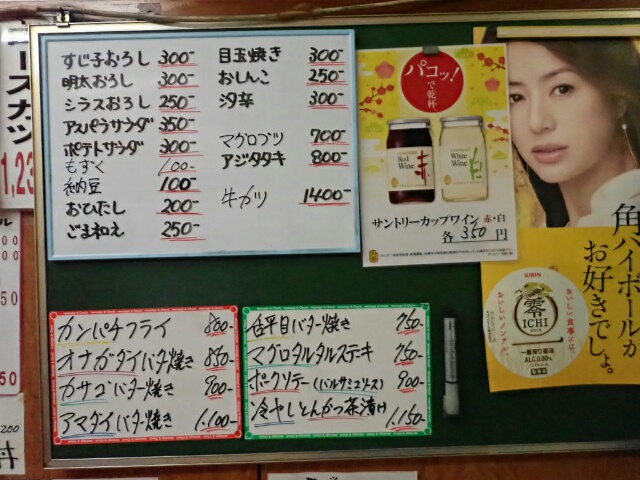 すじ子おろし 300-
明太おろし 300-
シラスおろし 250-
アスパラサラダ 350-
ポテトサラダ 300-
もずく 100-
納豆 100-
おひたし 200-
ごま和え 250-
目玉焼き 300-
おしんこ 250-
汐辛 300-
マグロブツ 700-
アジタタキ 800-
牛カツ 1400-
パコッ!
で乾杯
Red Wine 赤
White Wine 白
サントリーカップワイン 赤・白
各 350 円
角ハイボールが
お好きでしょ。
KIRIN
零
ICHI
おいしい食事には、
おいしいノンアル。
一番搾り製法
ALC.0.00%
カンパチフライ 800-
オナガダイバター焼き 850-
カサゴバター焼き 900-
アマダイバター焼き 1.100-
舌平目バター焼き 750-
マグロタルタルステーキ 750-
ポークソテー(バルサミコソース) 900-
冷やしとんかつ茶漬け 1,150-
スカツ
1,23
50
50
200
丼